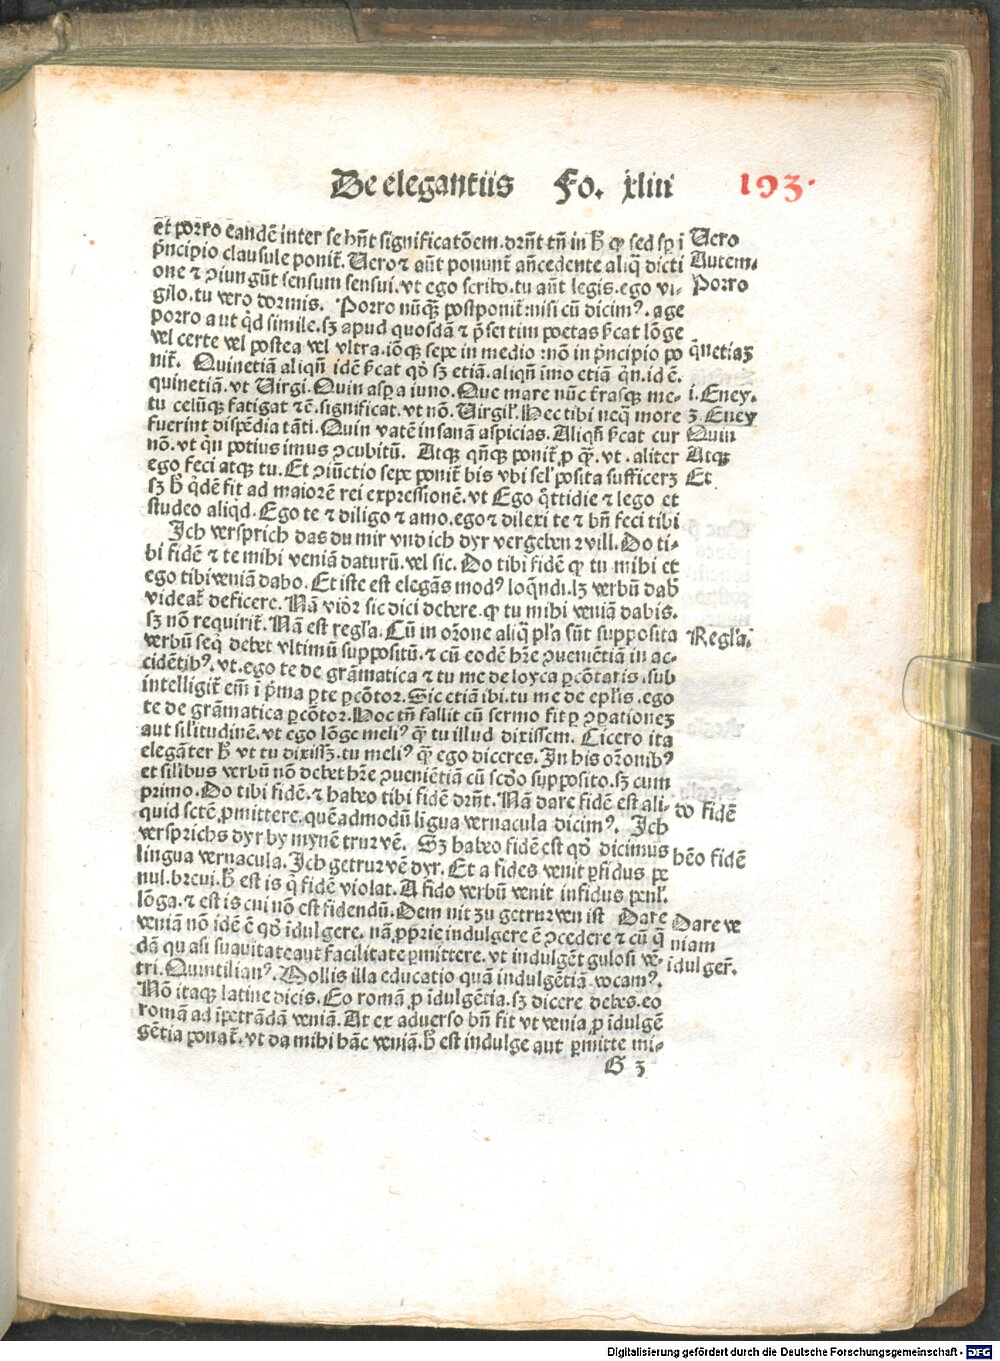 De elegantiis Fo. xliii 193.
et porro eandē inter se hn̄t significatōem. drn̄t tn̄ in h̄ ꝙ sed sp̱ i
p̄ncipio clausule ponit᷑. Uero ⁊ aūt ponunt᷑ an̄cedente aliq̄ dicti
one ⁊ ↄiungūt sensum sensui. vt ego scribo. tu aūt legis. ego vi-
gilo. tu vero dormis. Porro nūqꝫ postponit᷑: nisi cū dicimꝰ. age
porro aut qd̓ simile. sꝫ apud quosdā ⁊ p̄sertim poetas ſ̄cat lōge
vel certe vel postea vel vltra. iōqꝫ sepe in medio: nō in p̄ncipio po
nit᷑. Quinetiā aliqn̄ idē ſ̄cat qd̓ sꝫ etiā. aliqn̄ imo etiā qn̄. id ē.
quinetiā. vt Uirgi. Quin asp̱a iuno. Que mare nūc t᷑rasqꝫ me-
tu celūqꝫ fatigat ⁊c̄. significat. vt nō. Uirgil̓. Nec tibi neq̄ more
fuerint dispēdia tāti. Quin vatē insanā aspicias. Aliqn̄ ſ̄cat cur
nō. vt qn̓ potius imus ↄcubitū. Atqꝫ qn̄qꝫ ponit᷑ ꝓ qꝫ̄. vt. aliter
ego feci atqꝫ tu. Et ↄiūctio sepe ponit᷑ bis vbi sel̓ posita sufficerꝫ
sꝫ h̄ qd̓ē fit ad maiorē rei expressionē. vt Ego q̓ttidie ⁊ lego et
studeo aliqd̓. Ego te ⁊ diligo ⁊ amo. ego ⁊ dilexi te ⁊ bn̄ feci tibi
Ich versprich das du mir vnd ich dyr vergeben will. Do ti-
bi fidē ⁊ te mihi veniā daturū. vel sic. Do tibi fidē ꝙ tu mihi et
ego tibi veniā dabo. Et iste est elegās modꝰ loq̄ndi. lꝫ verbū dab̄
videat᷑ deficere. Nā vid̓r sic dici debere. ꝙ tu mihi veniā dabis.
sꝫ nō requirit᷑. Nā est regl̓a. Cū in or̄one aliq̄ pl̓a sūt supposita
verbū seq̓ debet vltimū suppositū. ⁊ cū eodē hr̄e ↄueniētiā in ac-
cidētibꝰ. vt. ego te de grāmatica ⁊ tu me de loyca ꝑcōtaris. sub
intelligit᷑ em̄ ī p̓ma ꝑte ꝑcōtor. Sic etiā ibi. tu me de epl̓is. ego
te de grāmatica ꝑcōtor. Hoc tn̄ fallit cū sermo fit ꝑ ↄꝑationeꝫ
aut sil̓itudinē. vt ego lōge meliꝰ qꝫ̄ tu illud dixissem. Cicero ita
elegāter h̄ vt tu dixissꝫ. tu meliꝰ qꝫ̄ ego diceres. In his or̄onibꝰ
et sil̓ibus verbū nō debet hr̄e ↄueniētiā cū scd̓o supposito. sꝫ cum
primo. Do tibi fidē. ⁊ habeo tibi fidē drn̄t. Nā dare fidē est ali-
quid sctē, ꝓmittere. quēadmodū ligua vernacula dicimꝰ. Ich
versprichs dyr by mynē truwē. Sꝫ habeo fidē est qd̓ dicimus
lingua vernacula. Ich getruwē dyr. Et a fides venit ꝑfidus pe
nul. breui. h̄ est is q̓ fidē violat. A fido verbū venit infidus penl̓.
lōga. ⁊ est is cui nō est fidendū. Dem nit zu getruwen ist Dare
veniā nō idē ē qd̓ īdulgere. nā, ꝓp̓rie indulgere ē ↄcedere ⁊ cū q̄
dā quasi suauitate aut facilitate ꝑmittere. vt indulgēt gulosi vē-
tri. Quintilianꝰ. Mollis illa educatio quā indulgētiā vocamꝰ.
Nō itaqꝫ latine dicis. Eo romā ꝓ īdulgētia. sꝫ dicere debes. eo
romā ad īpetrādā veniā. At ex aduerso bn̄ fit vt venia ꝓ īdulgē
gētia ponat᷑. vt da mihi hāc veniā. h̄ est indulge aut ꝑmitte mi-
G 3
Uero
Autem.
Porro
q̓netiaꝫ
i. Eney.
3. Eney
Quin
Atqꝫ
Et
Regl̓a.
do fidē
hēo fidē
Dare ve
niam
īdulger̄.
Digitalisierung gefördert durch die Deutsche Forschungsgemeinschaft - DFG